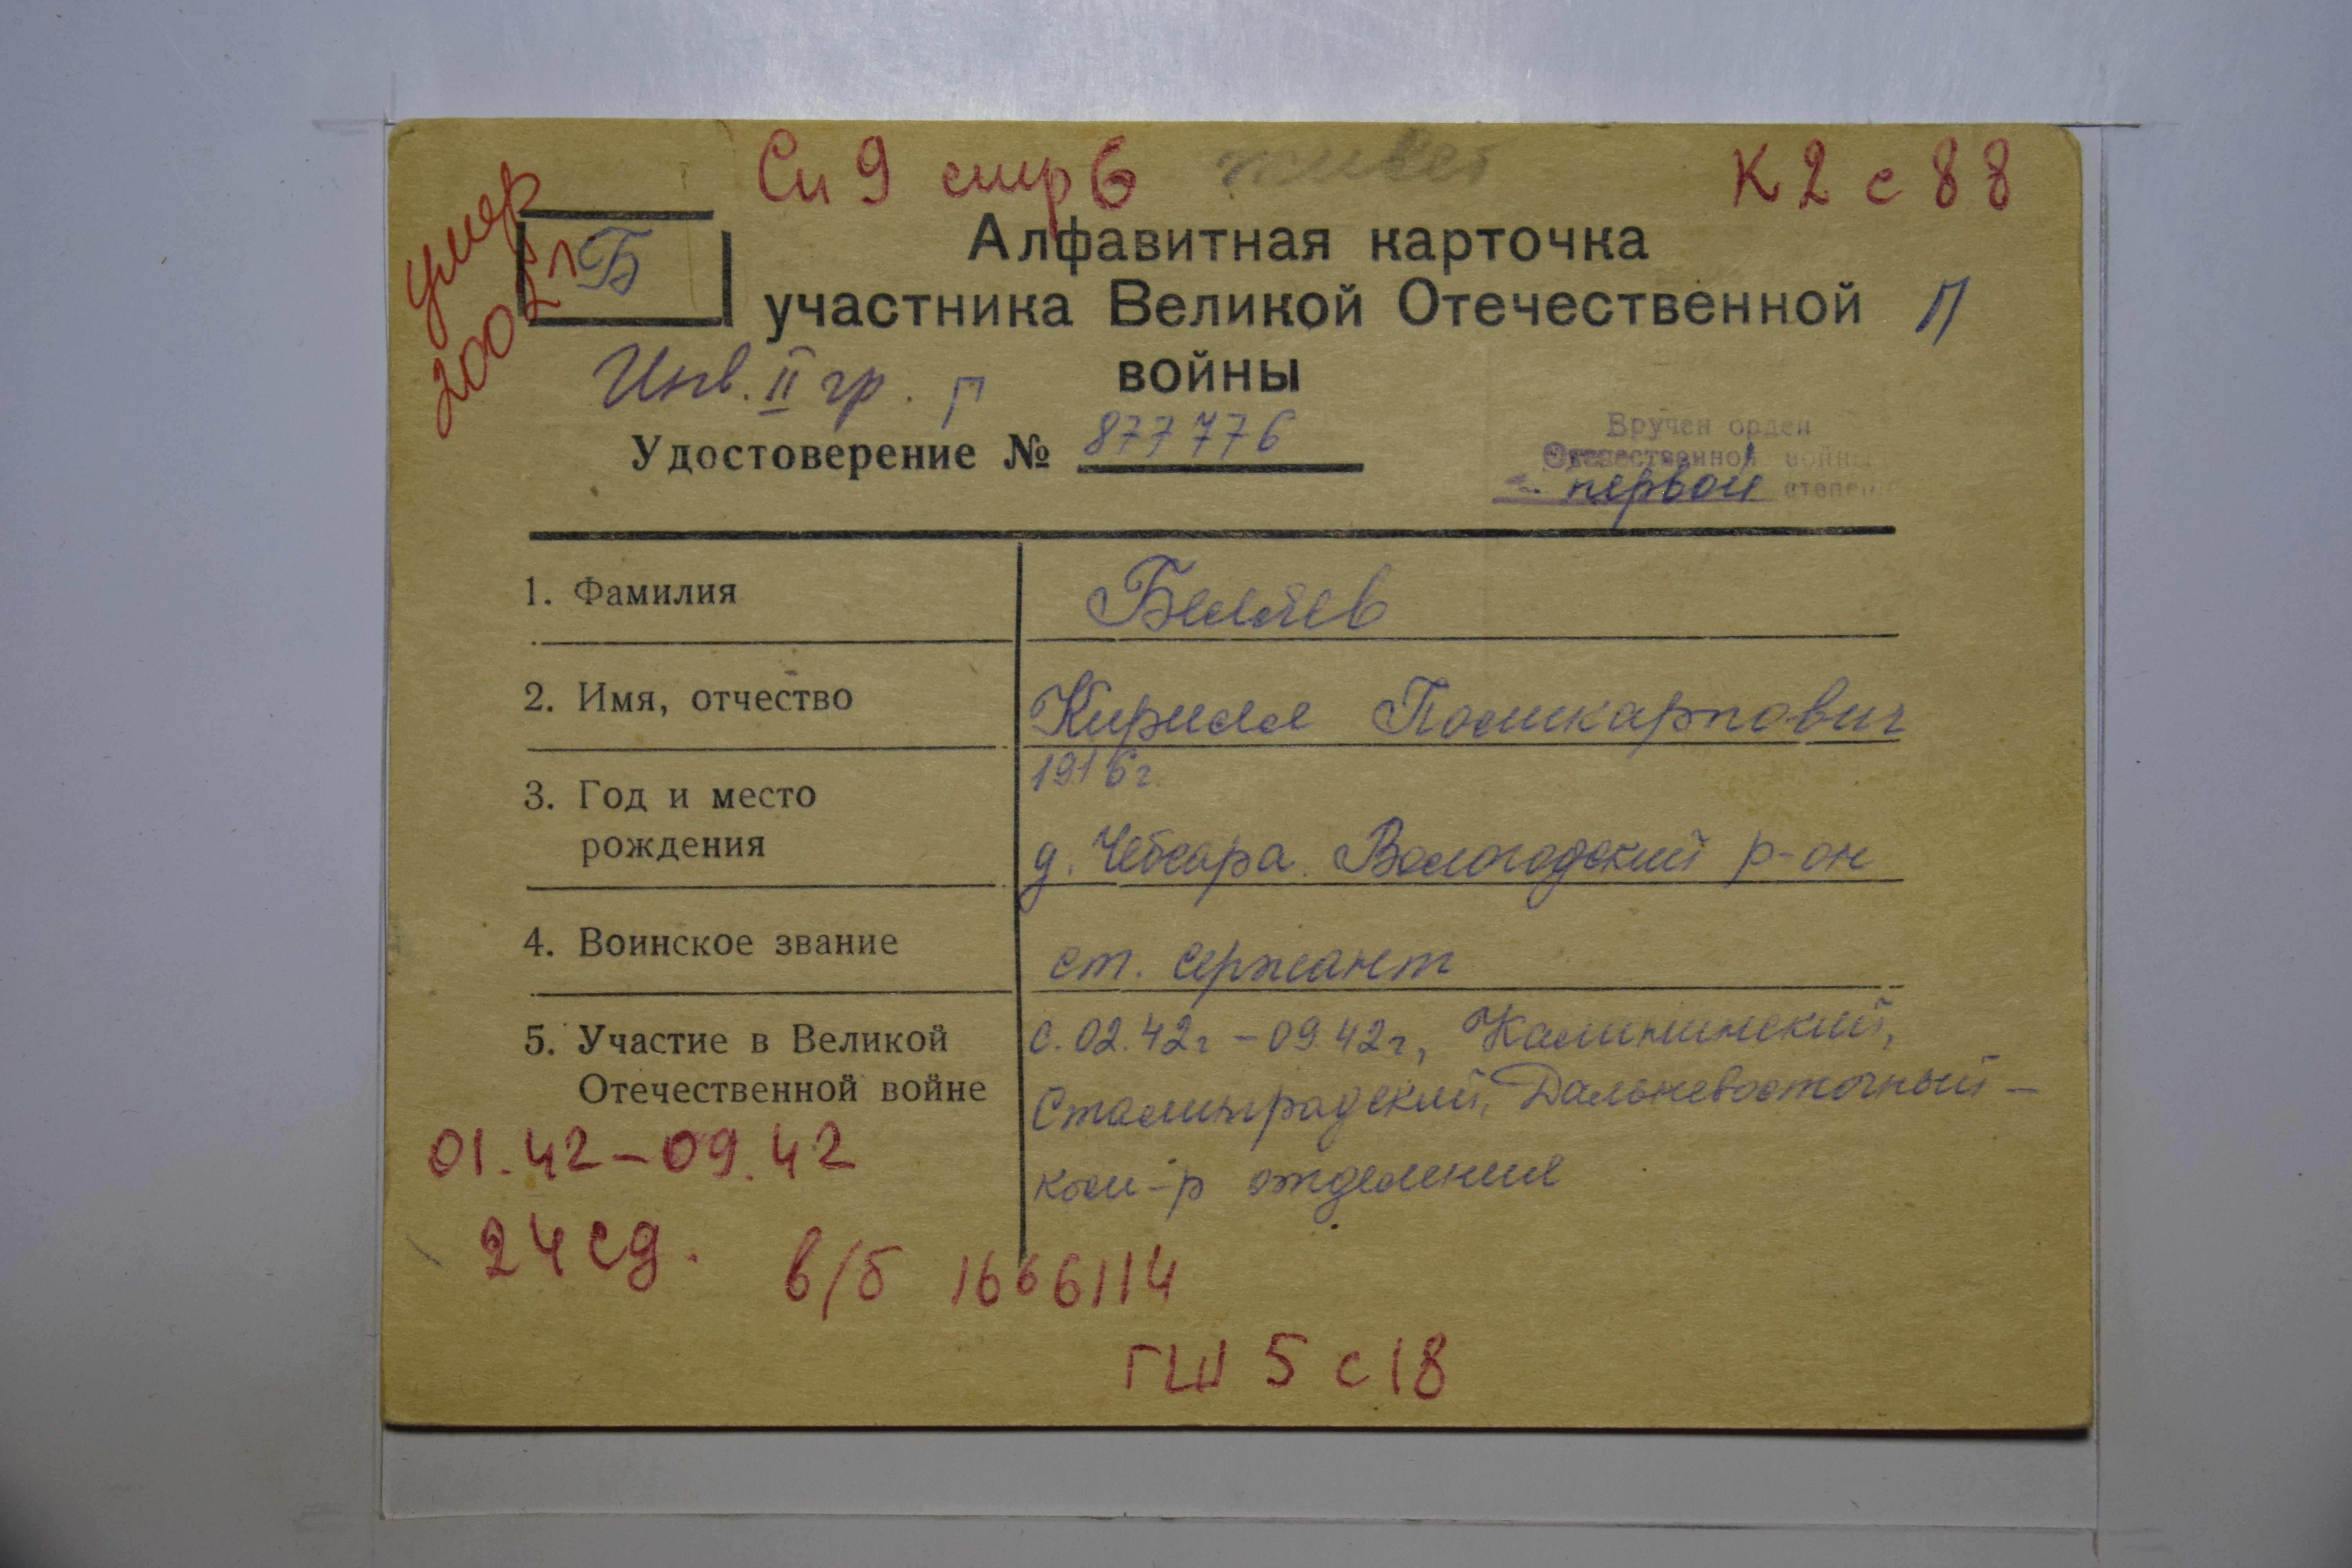 Сп 9 стр 6 живет К 2 с 88
умер
2002 г
Б
Алфавитная карточка
участника Великой Отечественной П
войны
Инв. II гр. Г
Удостоверение № 877776
Вручен орден
Отечественной войны
первой степени
1. Фамилия Беляев
2. Имя, отчество Кирилл Поликарпович
3. Год и место рождения 1916 г.
д. Чебсара Вологодский р-он
4. Воинское звание ст. сержант
5. Участие в Великой Отечественной войне с. 02.42г – 09.42г, Калининский,
Сталинградский, Дальневосточный –
ком-р отделения
01.42 – 09.42
24 сд.
в/б 1666114
ГШ 5 с 18